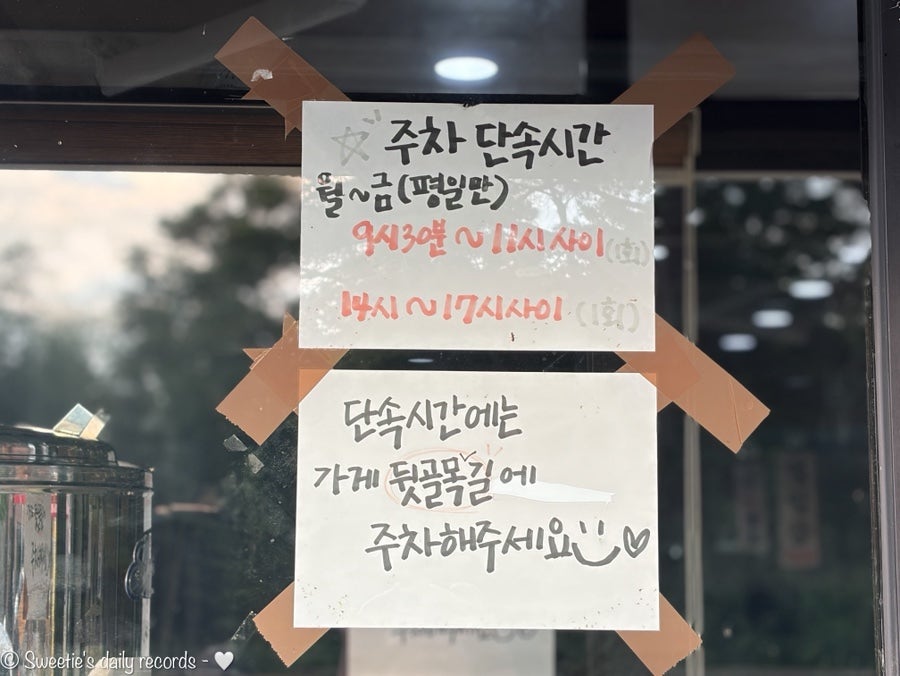 ☆ 주차 단속시간
월~금(평일만)
9시30분 ~ 11시 사이 (1회)
14시 ~ 17시 사이 (1회)
단속시간에는
가게 뒷골목길에
주차해주세요 ♡
© Sweetie's daily records - ♡